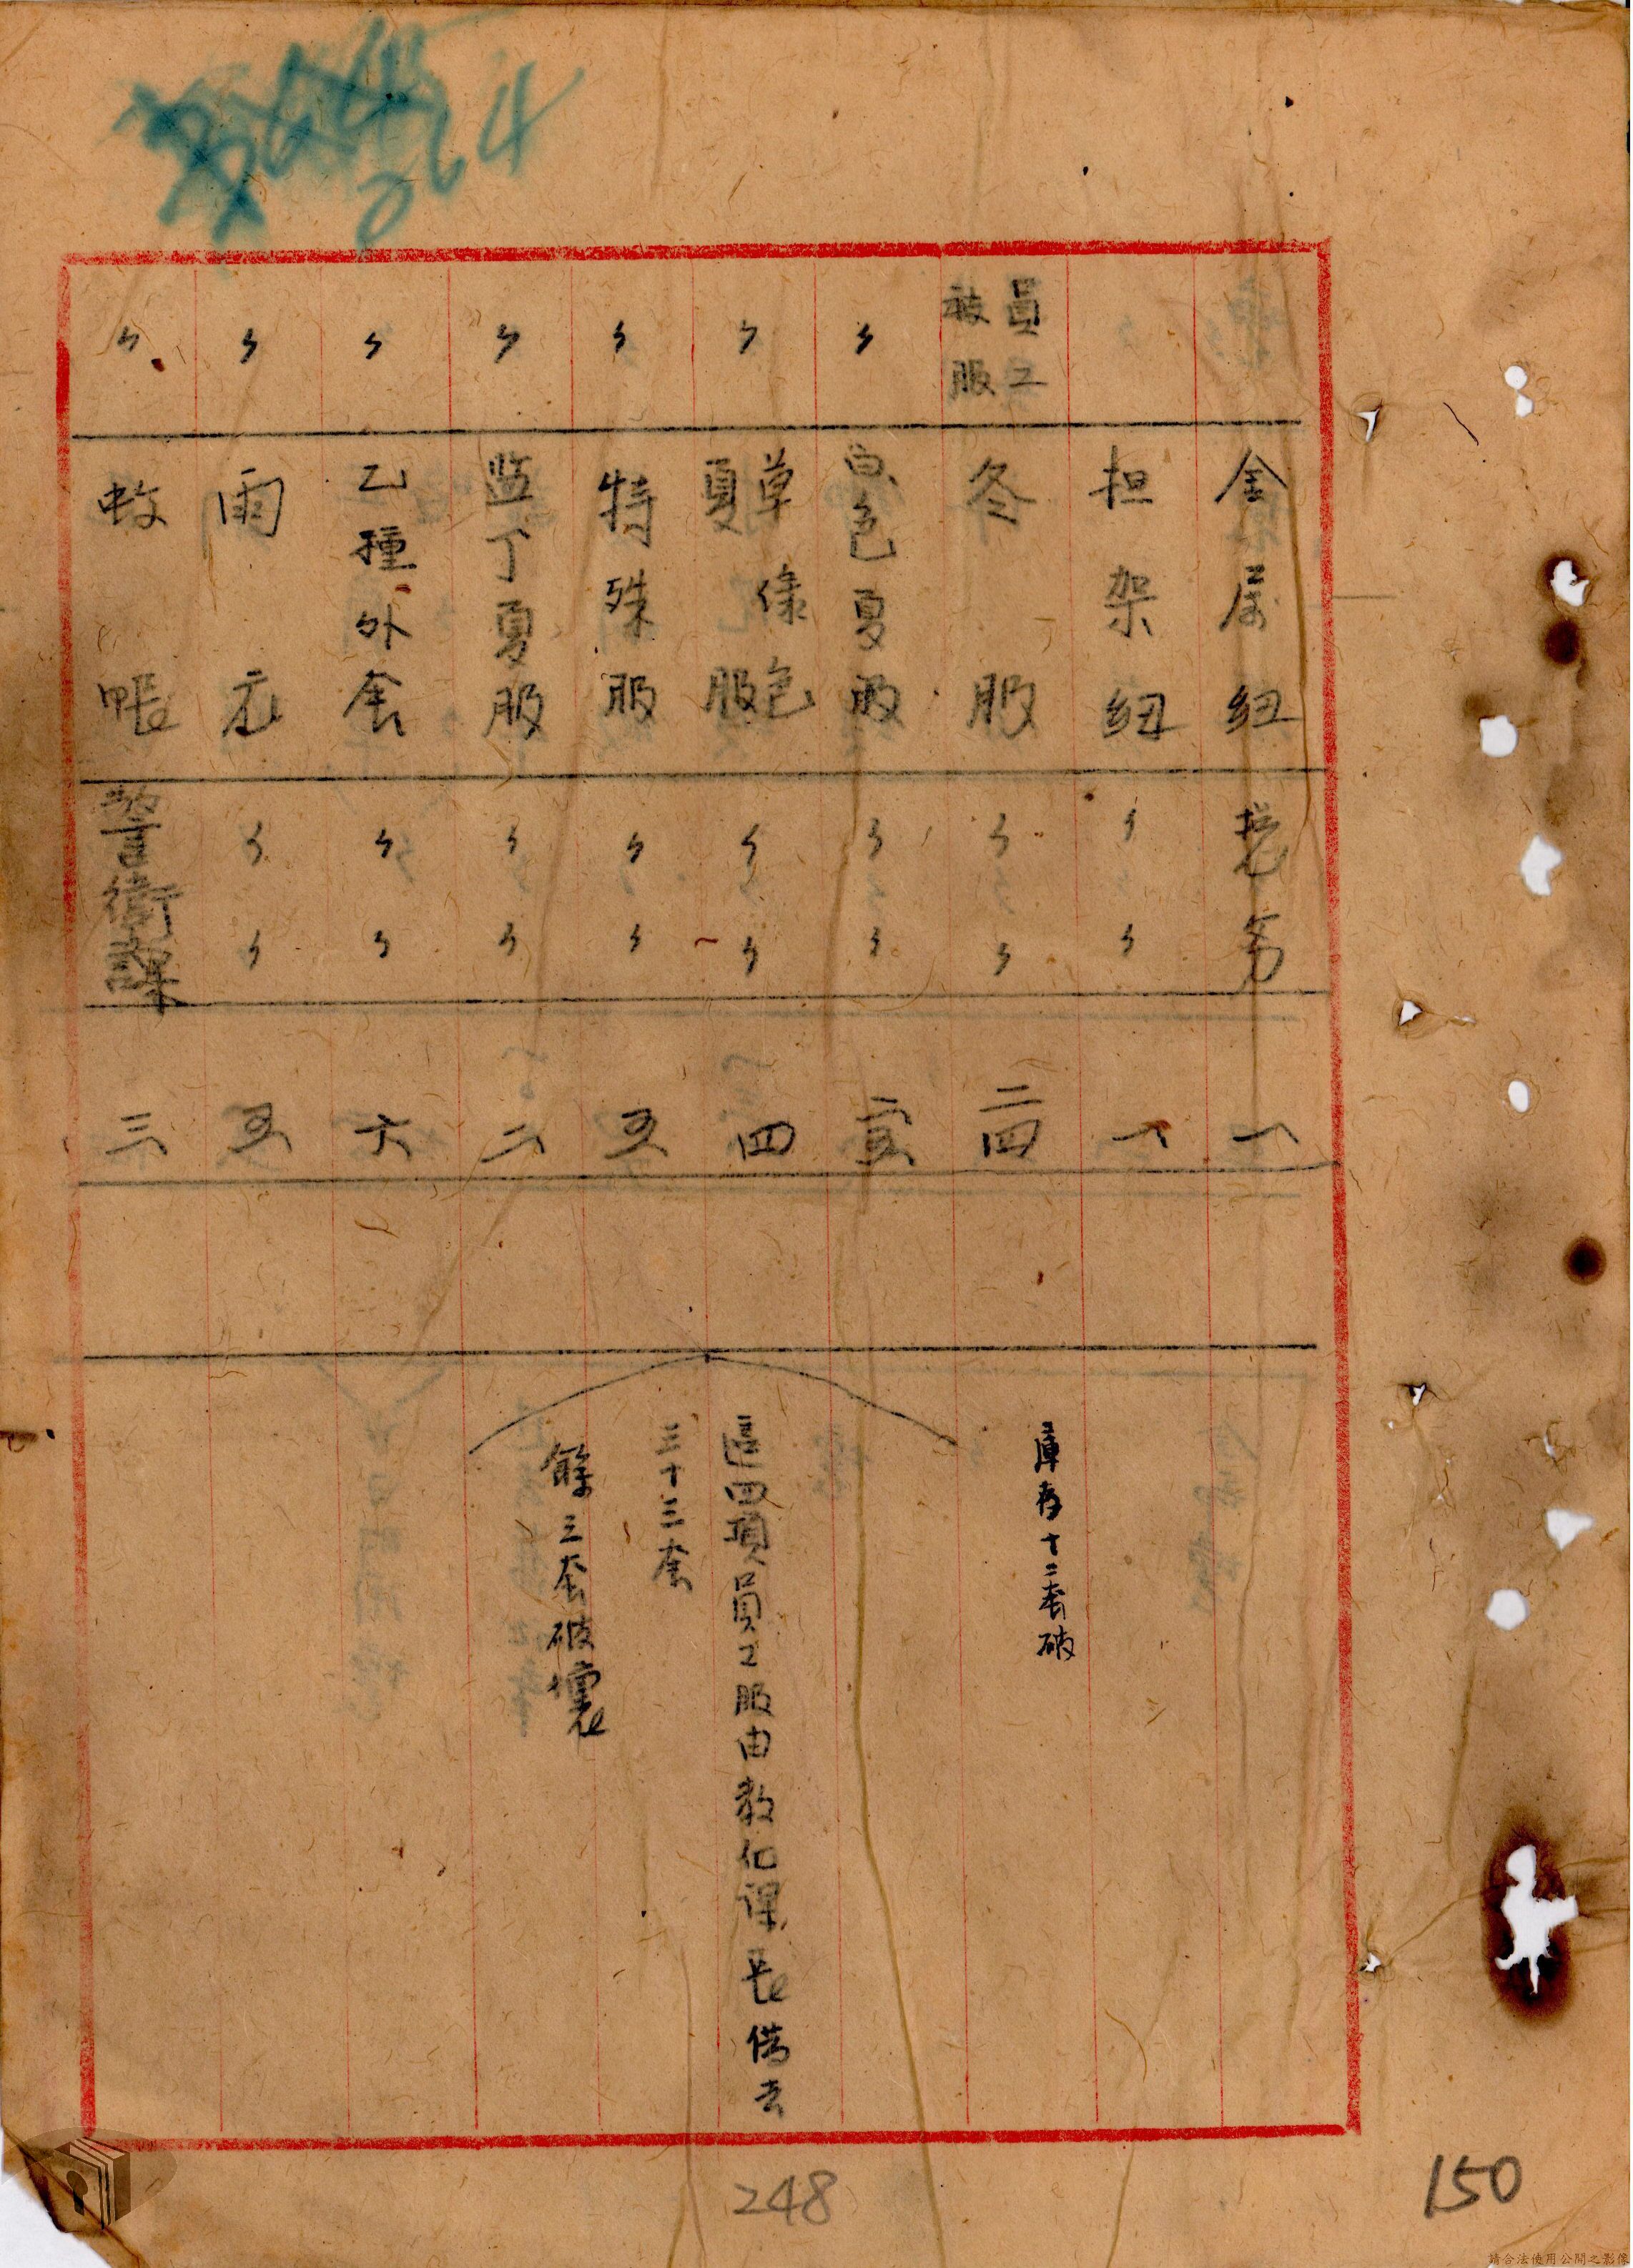 264
金属紐 総务 一
担架紐 〃 〃 一
員工被服 冬服 〃 〃 二四 庫存十二套破
〃 白色夏服 〃 〃
〃 草綠色夏服 〃 〃 四 這四項員工服由教化課長借去
三十三套
〃 特殊服 〃 〃 五
〃 监丁夏服 〃 〃 二 餘三套破壞
〃 乙種外套 〃 〃 六
〃 雨衣 〃 〃 五
〃 蚊帳 警衛課 三
248
150
請合法使用公開之影像